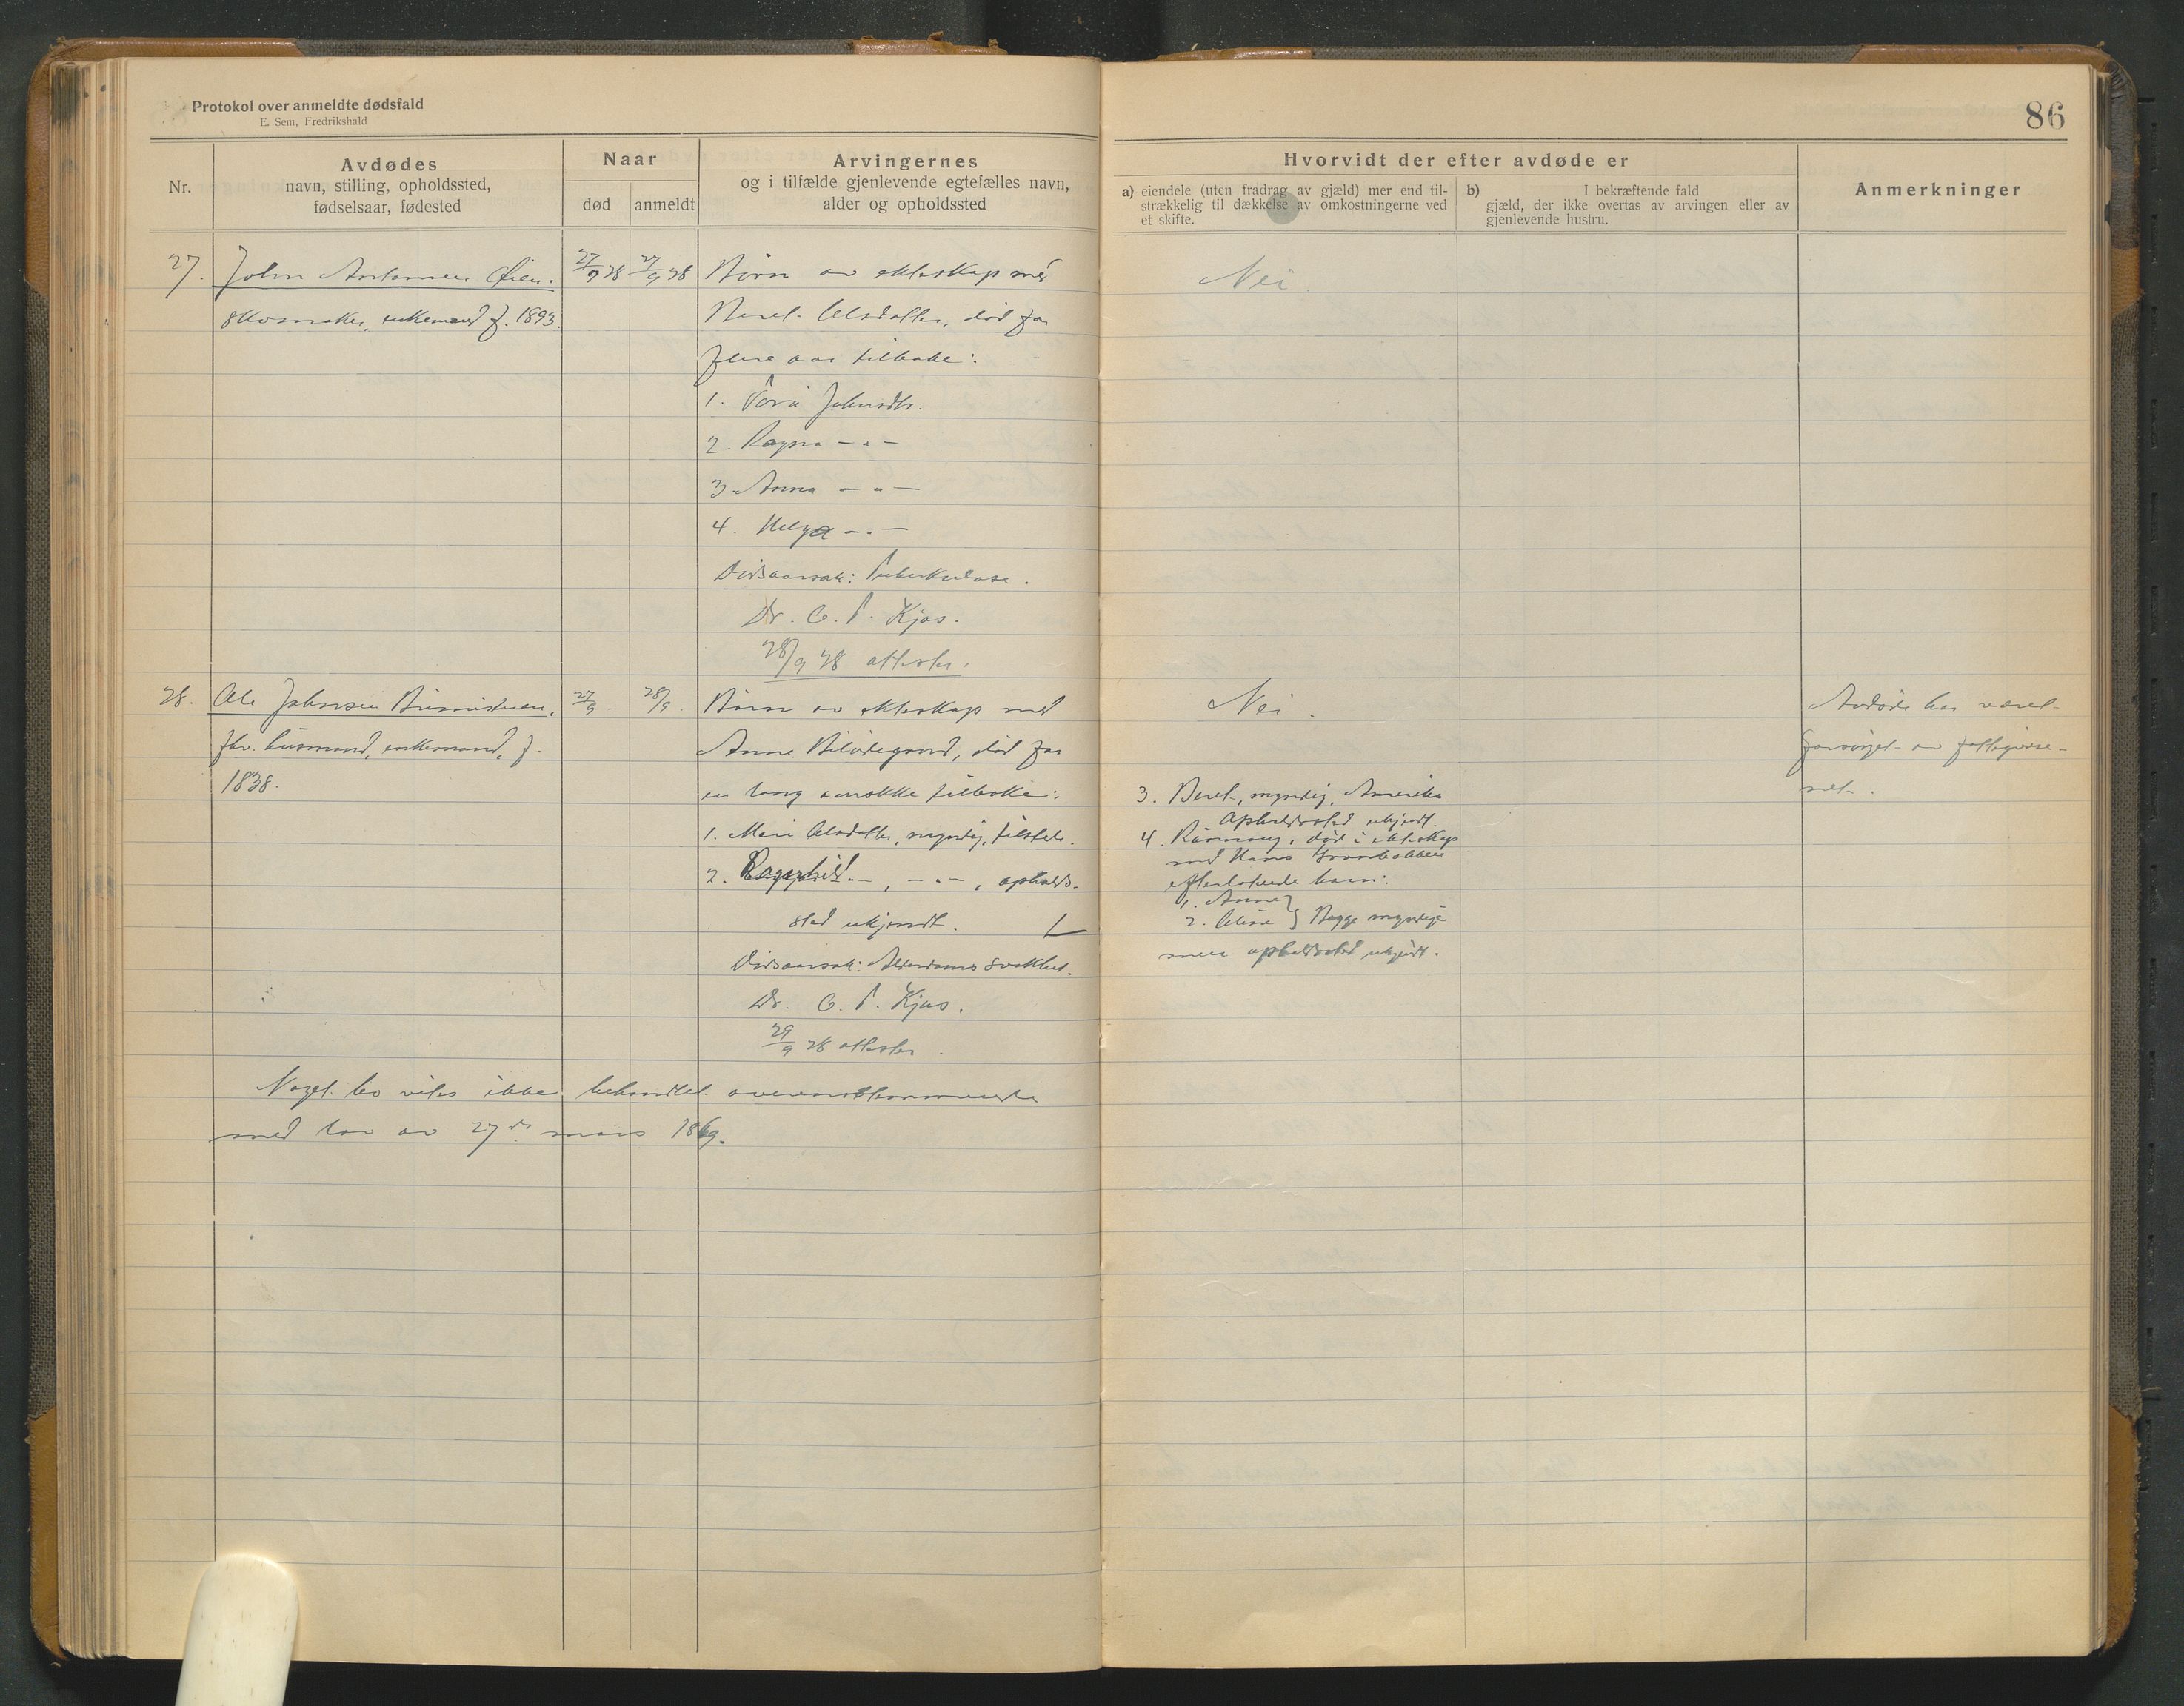 Protokol over anmeldte dødsfald
E. Sem, Fredrikshald
86
Nr.
Avdødes
navn, stilling, opholdssted,
fødselsaar, fødested
Naar
død
anmeldt
Arvingernes
og i tilfælde gjenlevende egtefælles navn,
alder og opholdssted
Hvorvidt der efter avdøde er
a) eiendele (uten fradrag av gjæld) mer end til-
strækkelig til dækkelse av omkostningerne ved
et skifte.
b) I bekræftende fald
gjæld, der ikke overtas av arvingen eller av
gjenlevende hustru.
Anmerkninger
27.
John Antonsen Øien.
skomaker, enkemand f. 1893.
27/9 28
27/9 28
Børn av ekteskap med
Beret Olsdatter, død for
flere aar tilbake:
1. Tora Johnsdtr.
2. Ragna — " —
3. Anna — " —
4. Helga — " —
Dødsaarsak: Tuberkulose.
Dr. C. T. Kjøs.
28/9 28 attester.
Nei.
28.
Ole Johnsen
fhv. husmand, enkemand, f.
1838.
27/9.
28/9.
Børn av ekteskap med
Anne død for
en lang aarrække tilbake:
1. Mari Olsdatter, myndig, tilstede.
2. Ragnhild — " —, — " —, opholds-
sted ukjendt.
Dødsaarsak: Alderdoms svakhet.
Dr. C. T. Kjøs.
29/9 28 attester.
Nei.
3. Beret, myndig, Amerika
Opholdssted ukjendt.
4. død i ekteskap
med Hans
efterlatende barn:
1. Anne
2. Oline } Begge myndige
men opholdssted ukjendt.
Avdøde har været
forsørget av fattigvæse-
net.
Noget bo vites ikke behandlet overensstemmende
med lov av 27de mars 1869.